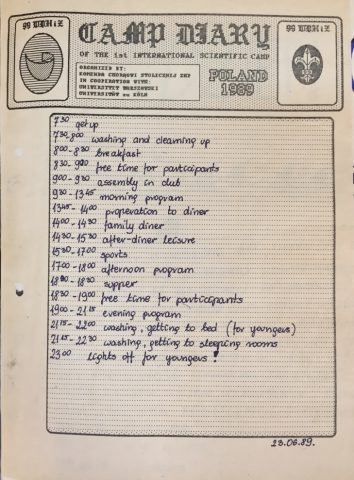 99 WDH i Z
CAMP DIARY
99 WDH i Z
OF THE 1st INTERNATIONAL SCIENTIFIC CAMP
ORGANIZED BY:
KOMENDA CHORĄGWI STOŁECZNEJ ZHP
IN COOPERATION WITH:
UNIWERSYTET WARSZAWSKI
UNIVERSITÄT zu KÖLN
POLAND
1989
7 30 get up
7 30 - 8 00 washing and cleaning up
8 00 - 8 30 breakfast
8 30 - 9 00 free time for participants
9 00 - 9 30 assembly in club
9 30 - 13 45 morning program
13 45 - 14 00 preperation to diner
14 00 - 14 30 family diner
14 30 - 15 30 after-diner leisure
15 30 - 17 00 sports
17 00 - 18 00 afternoon program
18 00 - 18 30 supper
18 30 - 19 00 free time for participants
19 00 - 21 15 evening program
21 15 - 22 00 washing, getting to bed (for youngers)
21 45 - 22 30 washing, getting to sleeping rooms
23 00 lights off for youngers!
23.06.89.